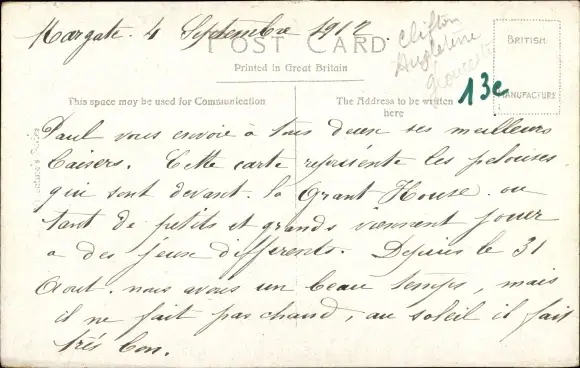 Margate. 4 Septembre 1912.
Clifton
Angleterre
Gloucester
POST CARD
BRITISH
MANUFACTURE
Printed in Great Britain
13e
This space may be used for Communication
The Address to be written
here
Paul vous envoie à tous deux ses meilleurs
baisers. Cette carte représente les pelouses
qui sont devant la Grant House ou
tant de petits et grands viennent jouer
a des jeux differents. Depuis le 31
Aout. nous avons un beau temps, mais
il ne fait pas chaud, au soleil il fait
très bon.